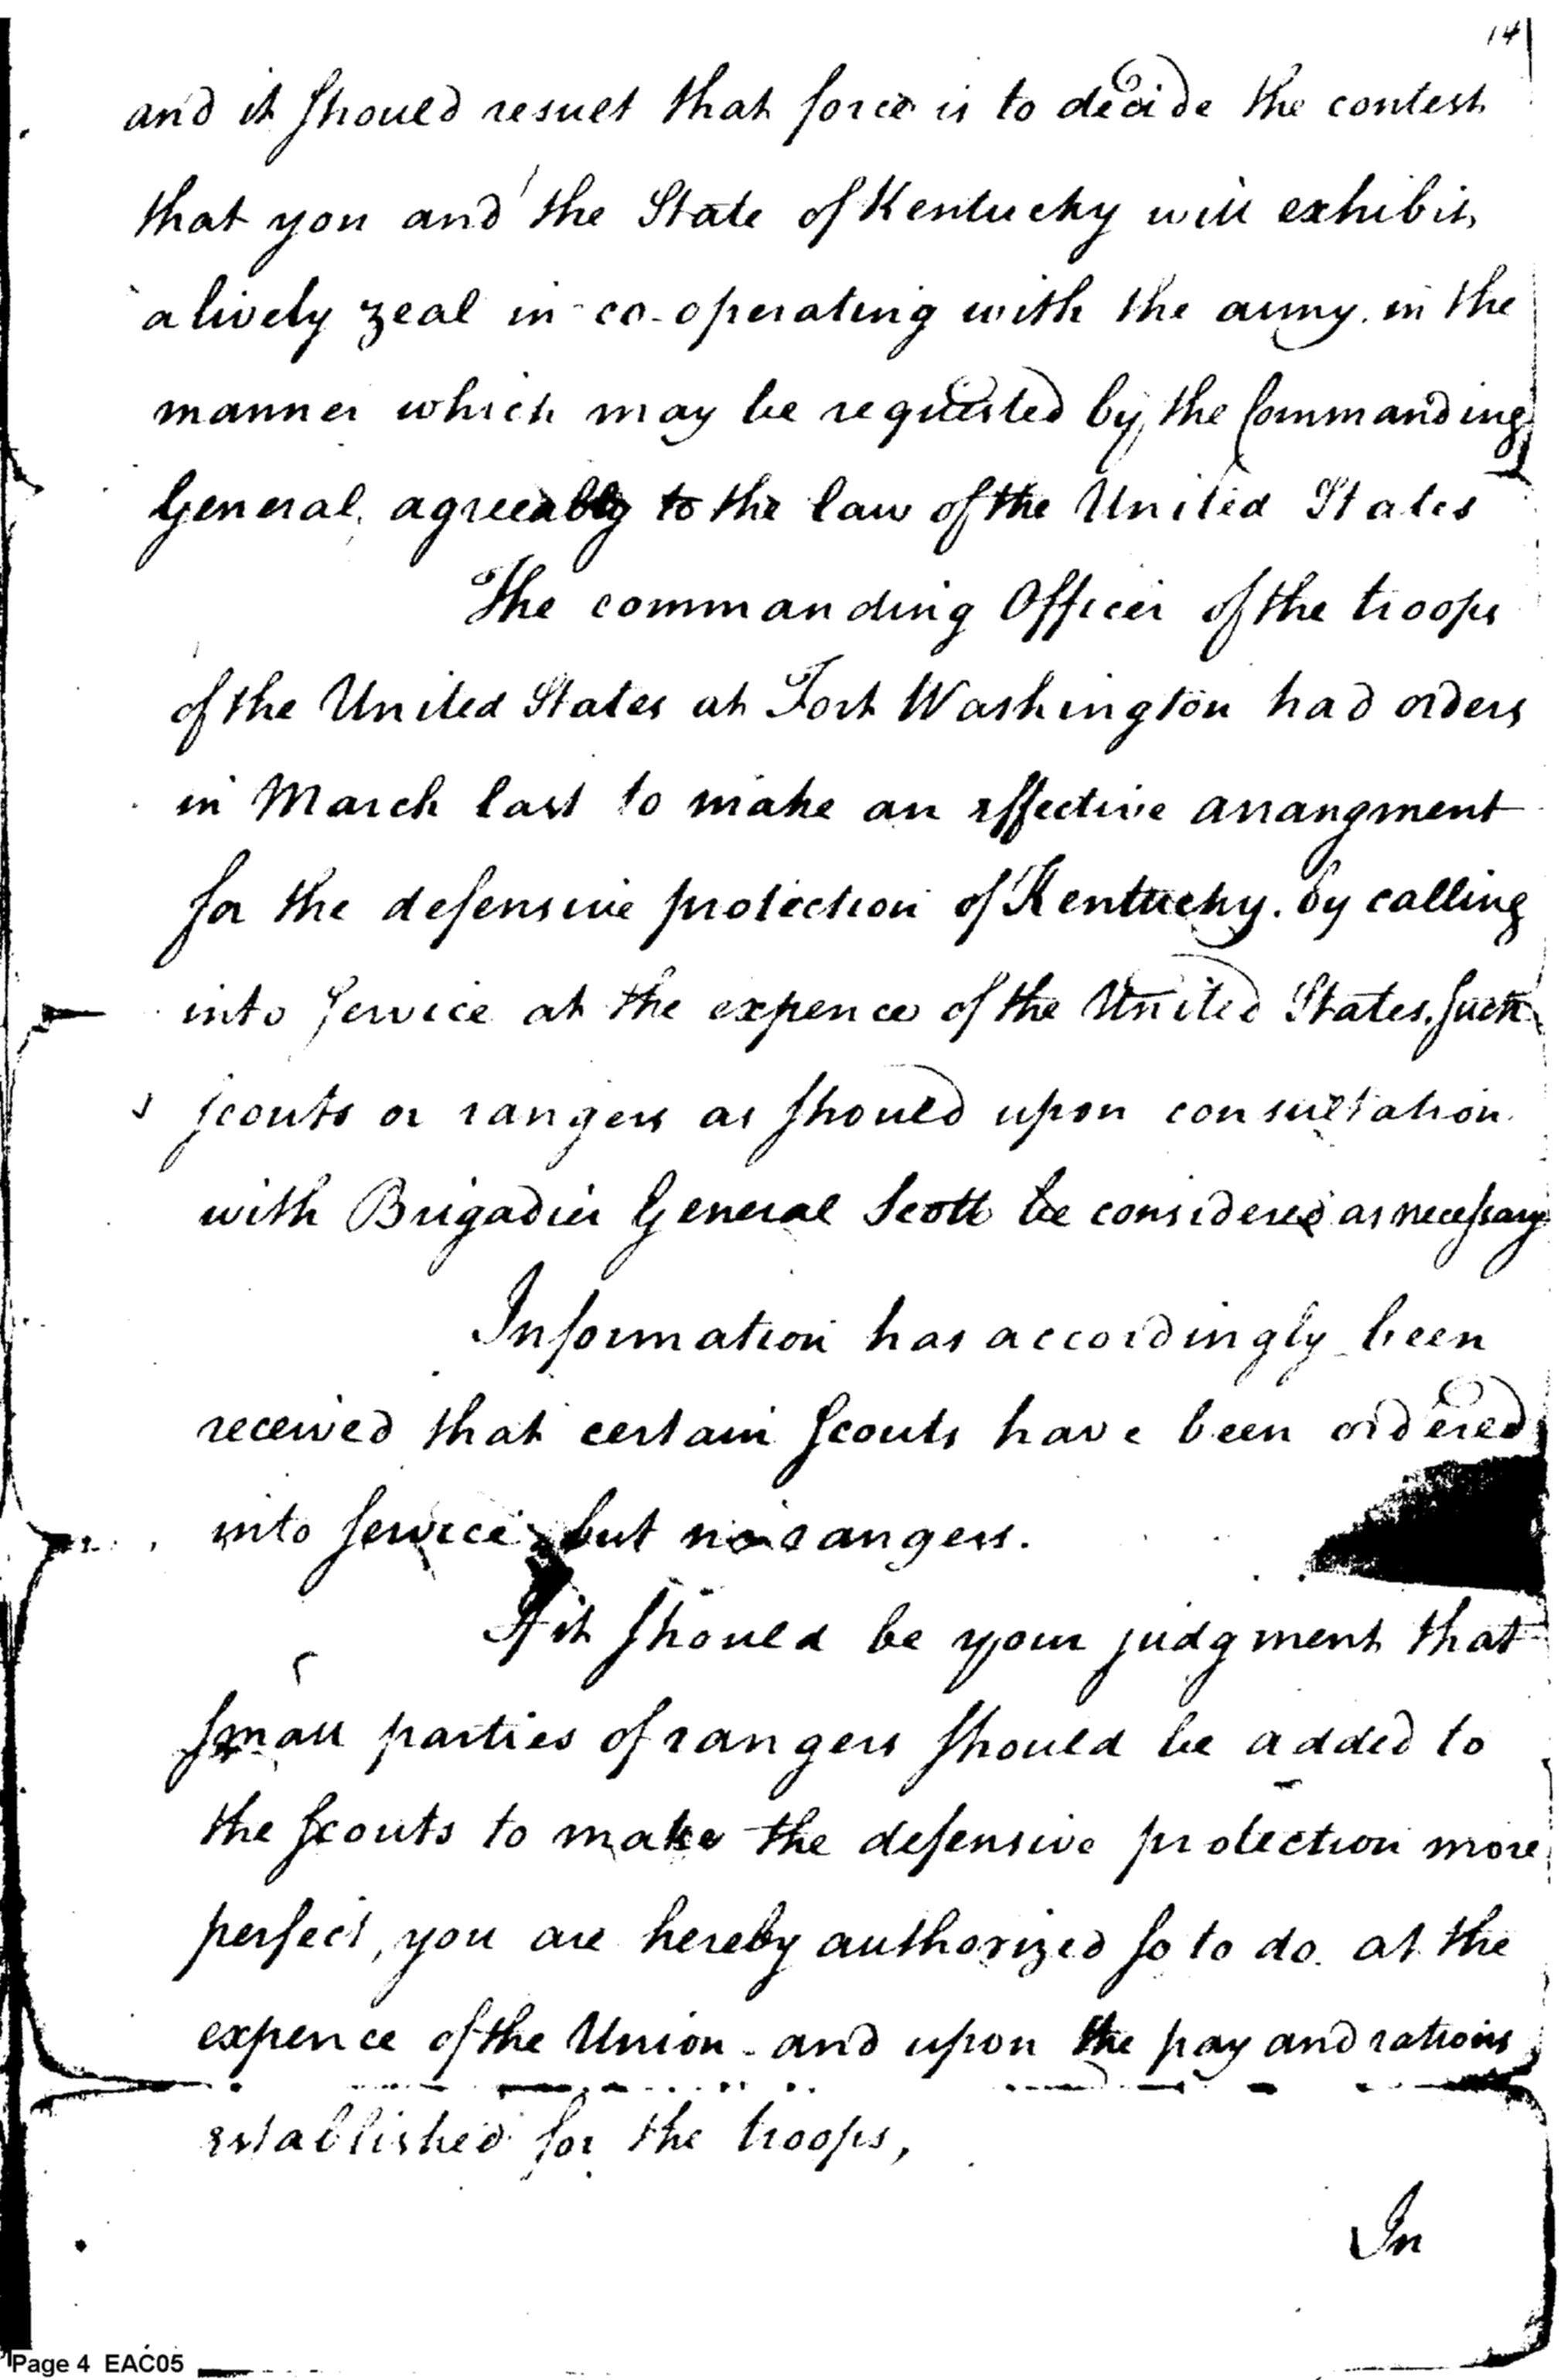 14
and it should result that force is to decide the contest
that you and the State of Kentucky will exhibit
a lively zeal in co-operating with the army in the
manner which may be requested by the Commanding
General, agreeably to the law of the United States
The commanding Officer of the troops
of the United States at Fort Washington had orders
in March last to make an effective arrangment
for the defensive protection of Kentucky. by calling
into service at the expence of the United States, such
scouts or rangers as should upon consultation
with Brigadier General Scott be considered as necessary
Information has accordingly been
received that certain scouts have been ordered
into service, but no rangers.
If it should be your judgment that
small parties of rangers should be added to
the scouts to make the defensive protection more
perfect, you are hereby authorized so to do. at the
expence of the Union - and upon the pay and rations
established for the troops,
In
Page 4 EAC05